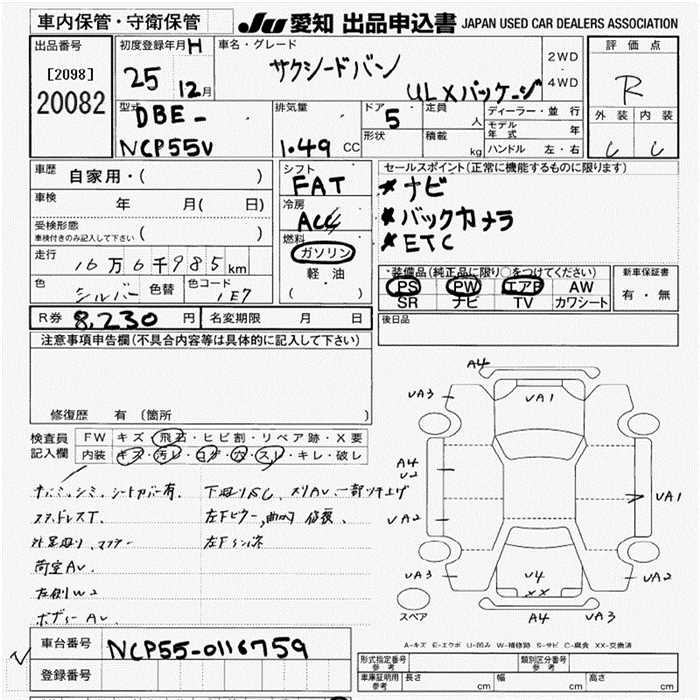 車内保管・守衛保管
Ju 愛知 出品申込書 JAPAN USED CAR DEALERS ASSOCIATION
出品番号
[2098]
20082
初度登録年月 H
25
12月
車名・グレード
サクシードバン
UL Xパッケージ
2WD
・
4WD
評価点
R
外装 内装
C C
型式
DBE-
NCP55V
排気量
1.49 CC
ドア
5
形状
定員
人
積載
kg
ディーラー・並行
モデル年式 年
ハンドル 左・右
車歴
自家用・( )
車検
年 月( 日)
受検形態
車検付きのみ記入して下さい ( )
走行
16万6千985km
色
シルバー
色替
色コード
1E7
シフト
FAT
冷房
AC
燃料
ガソリン
軽油
( )
セールスポイント(正常に機能するものに限ります)
★ナビ
★バックカメラ
★ETC
*装備品(純正品に限り○をつけてください)
PS PW エアB AW
SR ナビ TV カワシート
新車保証書
有・無
R券 8,230 円
名変期限 月 日
後日品
注意事項申告欄(不具合内容等は具体的に記入して下さい)
修復歴 有(箇所 )
検査員
記入欄
FW キズ・飛石・ヒビ割・リペア跡・X要
内装 キズ・汚レ・コゲ・穴・スレ・キレ・破レ
シミ、シートカバー有
スタッドレスT
荷室AV.
左側W2
ボディーAV.
A4
VA3
VA1
VA3
A4
V2
VA2
VA1
VA3
V4
XX
VA2
A4
VA3
スペア
A-キズ E-エクボ U-凹み W-補修跡 S-サビ C-腐食 XX-交換済
車台番号
NCP55-0116759
登録番号
形式指定番号
参考
類別区分番号
参考
車庫証明用
参考
長さ cm
幅 cm
高さ cm